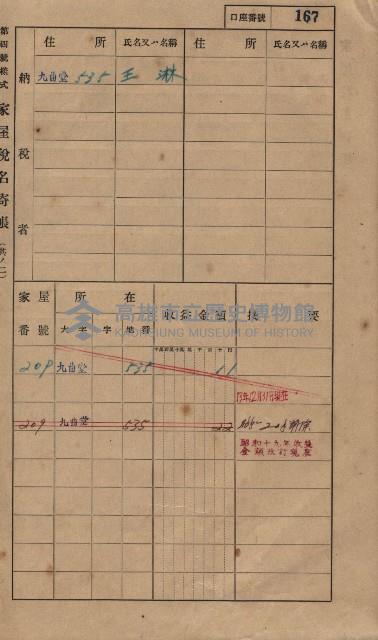 口座番號 167
第四號樣式 家屋稅名寄帳(共ノ二)
納稅者
住所 氏名又ハ名稱 住所 氏名又ハ名稱
九曲堂 535 王 淋
家屋番號 所在 大字 字 地番 收益金額 摘要
209 九曲堂 535 11
209 九曲堂 535 22
昭和十九年收益
金額改訂
高雄市立歷史博物館
KAOHSIUNG MUSEUM OF HISTORY